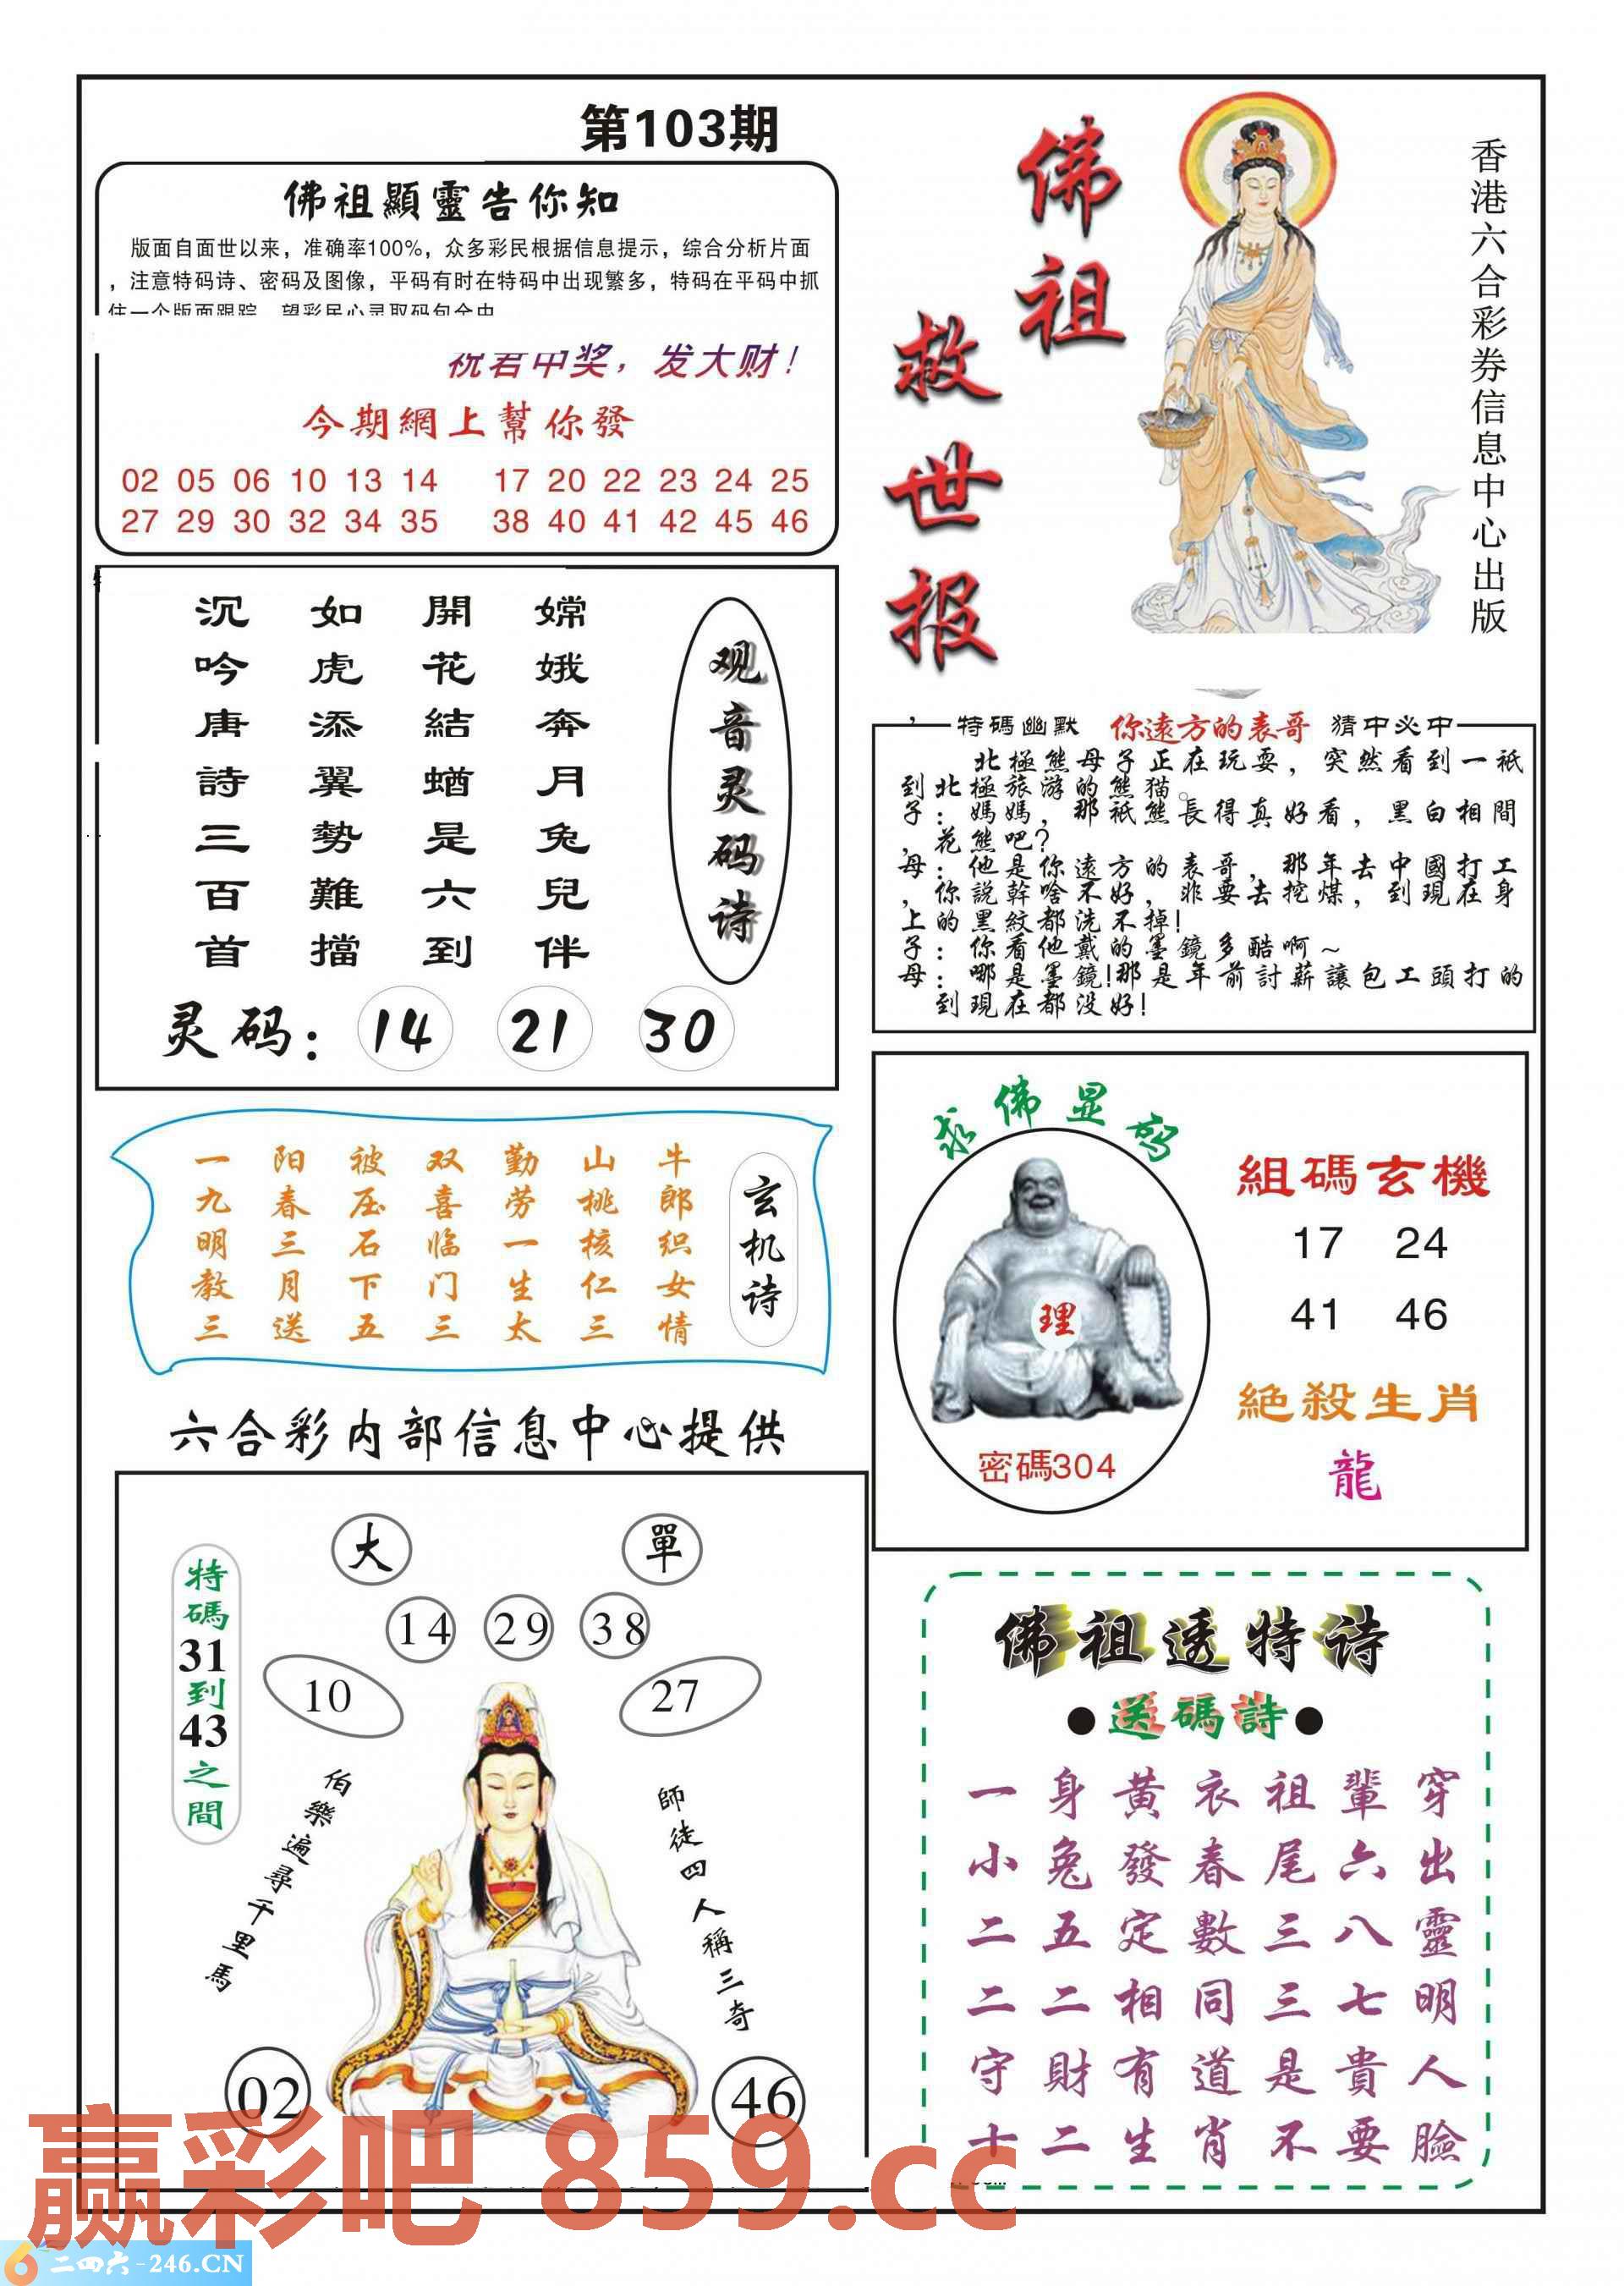 第103期
佛祖顯靈告你知
版面自面世以来，准确率100%，众多彩民根据信息提示，综合分析片面
，注意特码诗、密码及图像，平码有时在特码中出现繁多，特码在平码中抓
住一个版面跟踪
祝君中奖，发大财！
今期網上幫你發
02 05 06 10 13 14 17 20 22 23 24 25
27 29 30 32 34 35 38 40 41 42 45 46
佛祖
救世报
香港六合彩券信息中心出版
观音灵码诗
嫦娥奔月兔兒伴
開花結蝤是六到
如虎添翼勢難擋
沉吟唐詩三百首
灵码：14 21 30
特碼幽默 你遠方的表哥 猜中必中
北極熊母子正在玩耍，突然看到一衹
到北極旅游的熊猫。
子：媽媽，那衹熊長得真好看，黑白相間
，花熊吧？
母：他是你遠方的表哥，那年去中國打工
，你説幹啥不好，非要去挖煤，到現在身
上的黑紋都洗不掉！
子：你看他戴的墨鏡多酷啊～
母：哪是墨鏡！那是年前討薪讓包工頭打的
到現在都没好！
玄机诗
牛郎织女情
山桃核仁三
勤劳一生太
双喜临门三
被压石下五
阳春三月送
一九明教三
求佛显码
理
密碼304
組碼玄機
17 24
41 46
絕殺生肖
龍
六合彩内部信息中心提供
大 單
14 29 38
10 27
特碼31到43之間
伯樂遍尋千里馬
師徒四人稱三奇
02 46
佛祖透特诗
●送碼詩●
一身黃衣祖輩穿
小兔發春尾六出
二五定數三八靈
二二相同三七明
守財有道是貴人
十二生肖不要臉
赢彩吧 859.cc
二四六-246.CN